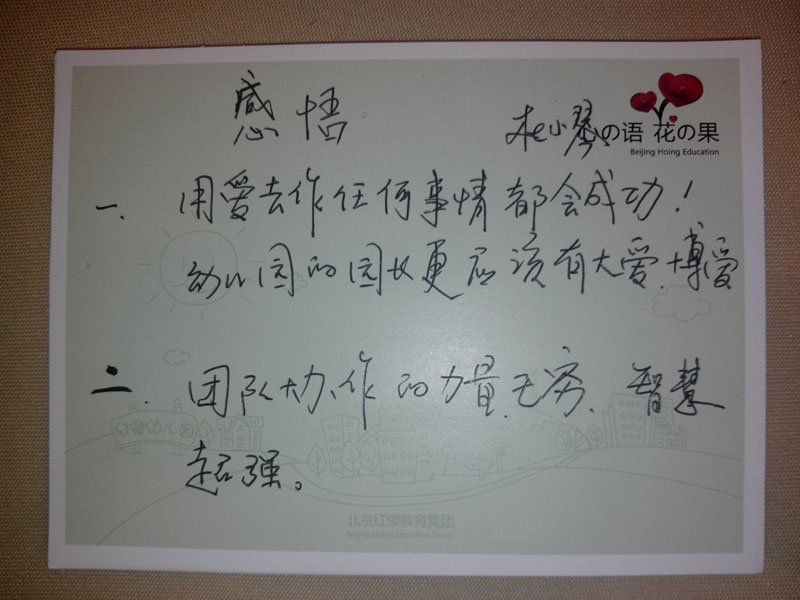 感悟
杜小琴
の语 花の果
Beijing Hoing Education
一、用爱去作任何事情都会成功!
幼儿园的园长更应该有大爱、博爱
二、团队协作的力量无穷、智慧
超强。
北京红缨教育集团
Beijing Hoing Education Group